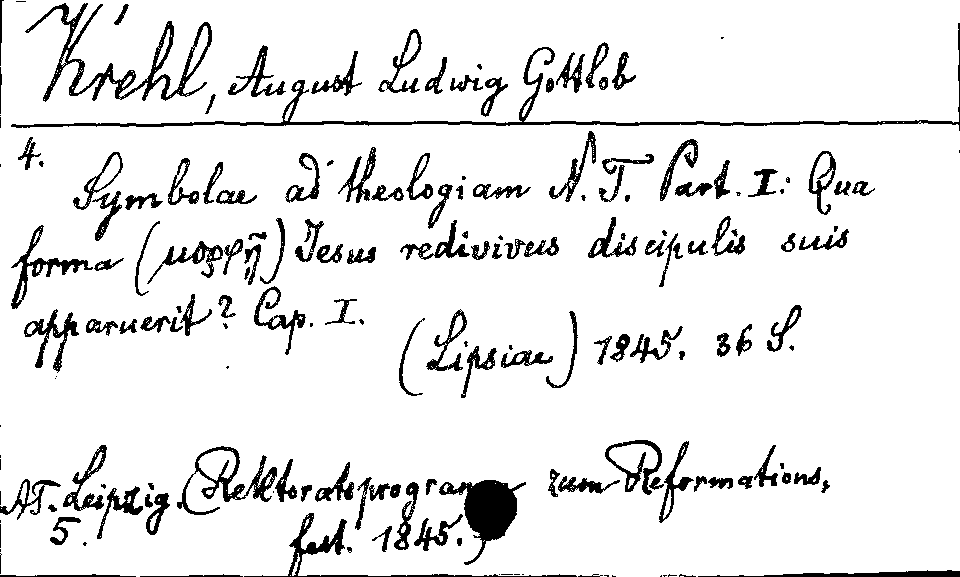 Krehl, August Ludwig Gottlob
4.
Symbolae ad theologiam N. T. Part. I: Qua
forma (μορφῇ) Jesus redivivus discipulis suis
apparuerit? Cap. I.
(Lipsiae) 1845. 36 S.
AT. Leipzig. (Rektoratsprogramm zum Reformations,
5. fest. 1845.)